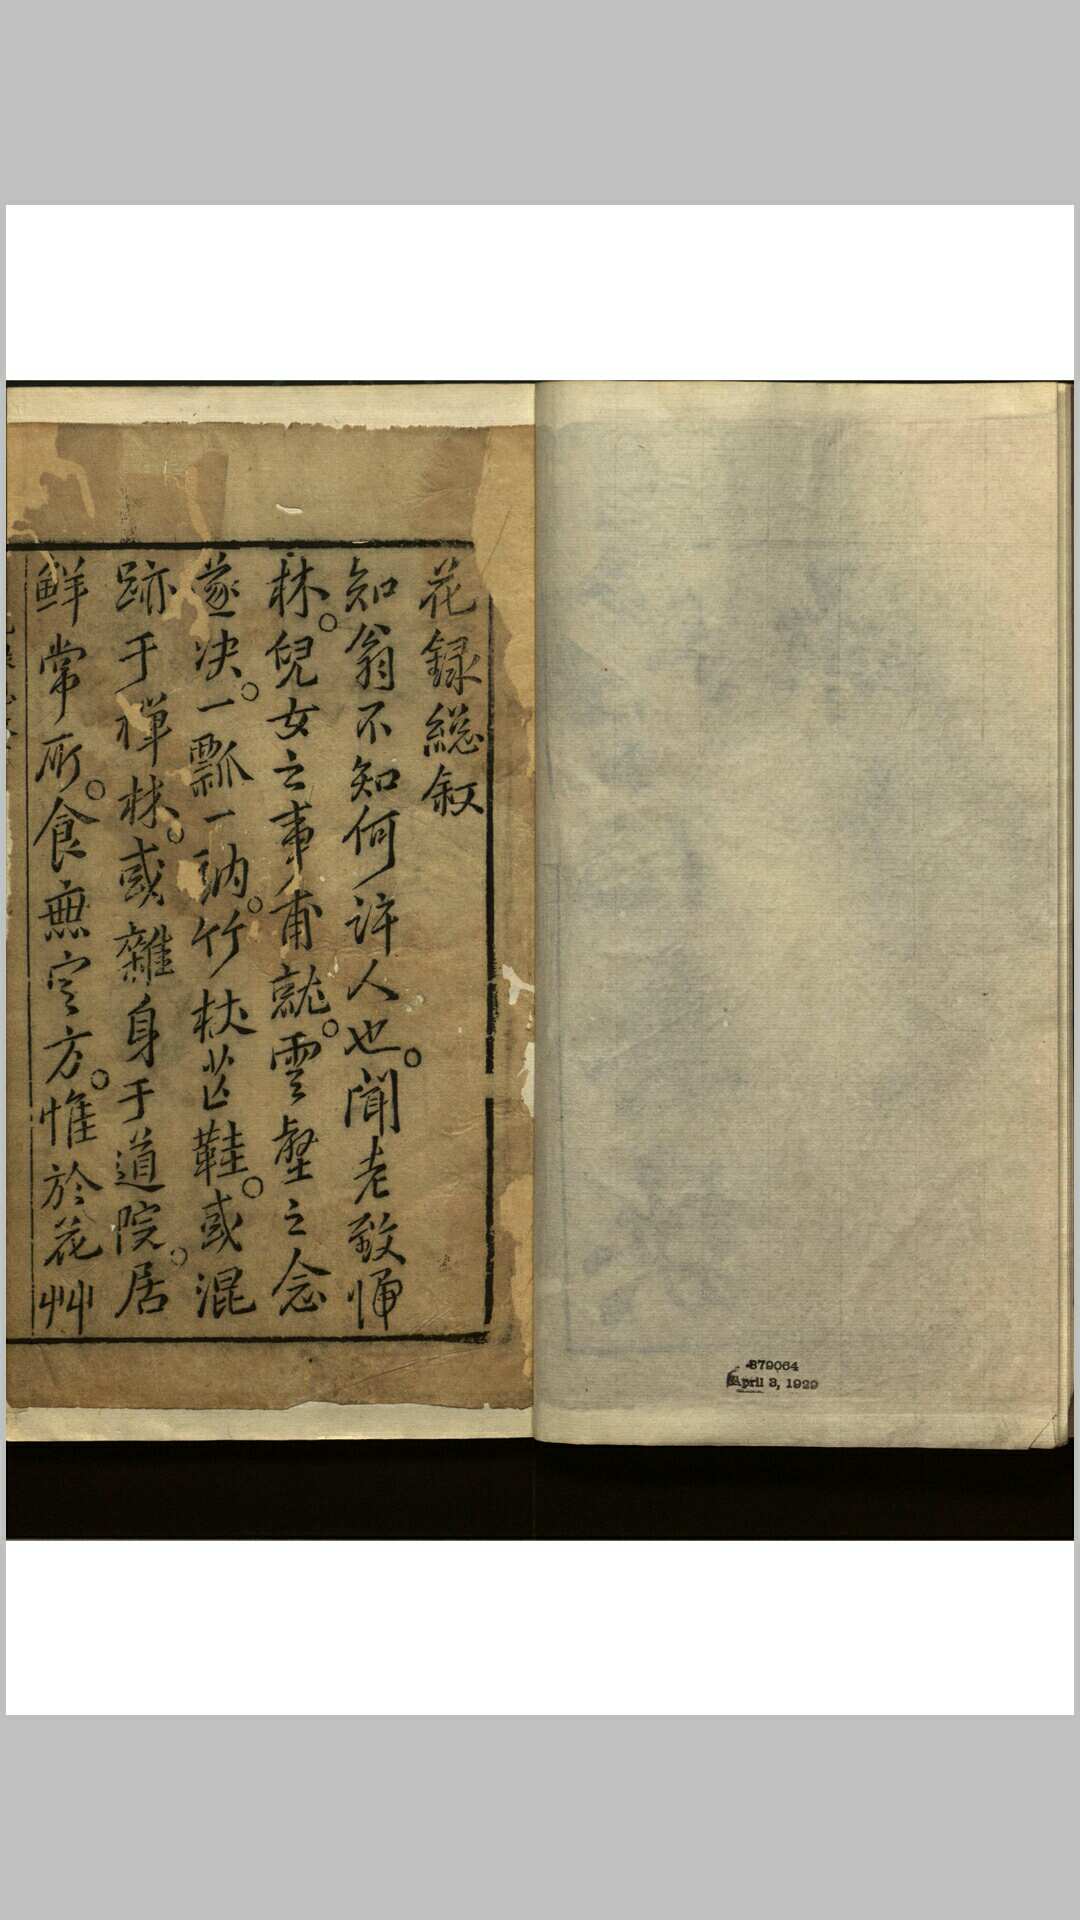 花録縂叙
知翁不知何許人也。聞老致悑
林。兒女之事甫就。雲壑之念
遂决。一瓢一衲。竹杖芒鞋。或混
跡于禪林。或雜身于道院。居
鲜常所。食無定方。惟於花艸
879064
April 3, 1929